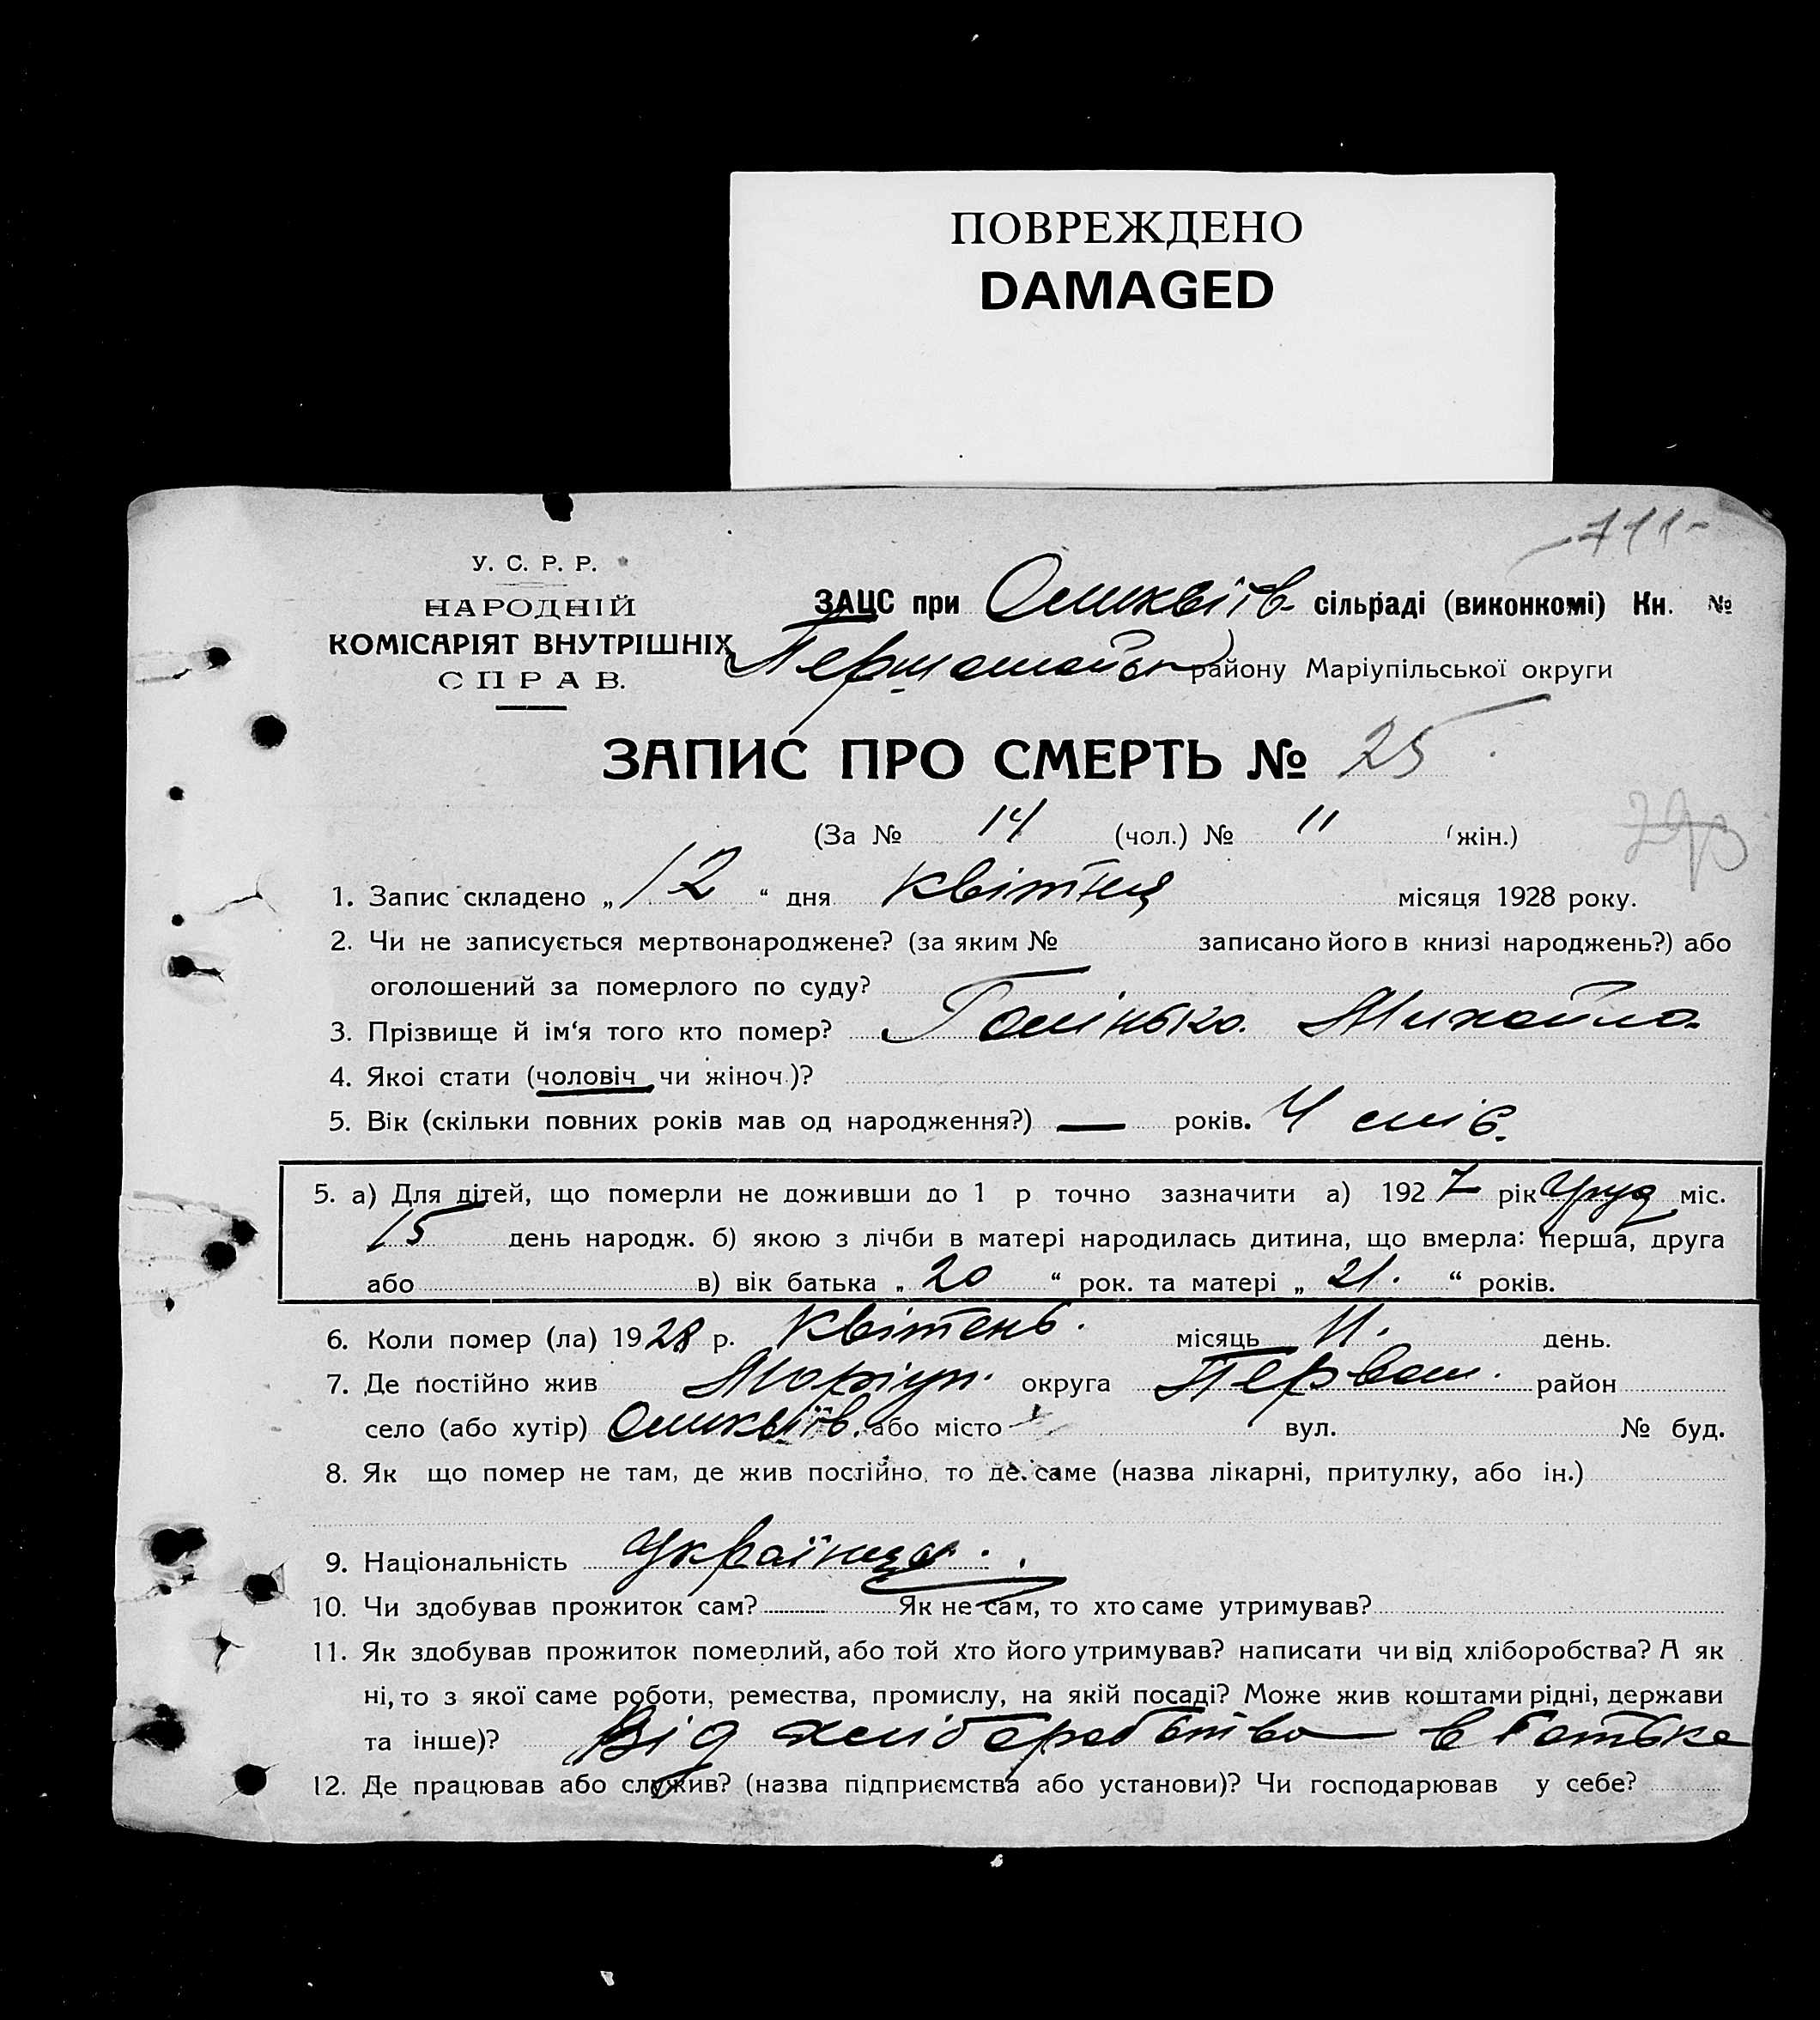 ПОВРЕЖДЕНО
DAMAGED
711-
У. С. Р. Р.
НАРОДНІЙ
КОМІСАРІЯТ ВНУТРІШНІХ
СПРАВ.
ЗАЦС при сільраді (виконкомі) Кн. №
району Маріупільської округи
ЗАПИС ПРО СМЕРТЬ № 25
(За № 14 (чол.) № 11 (жін.)
1. Запис складено „ 12 “ дня квітня місяця 1928 року.
2. Чи не записується мертвонароджене? (за яким № записано його в книзі народжень?) або
оголошений за померлого по суду?
3. Прізвище й ім‘я того кто помер? Михайло
4. Якоі стати (чоловіч чи жіноч.)?
5. Вік (скільки повних років мав од народження?) — років. 4 міс.
5. а) Для дітей, що померли не доживши до 1 р точно зазначити а) 1927 рік Груд міс.
15 день народж. б) якою з лічби в матері народилась дитина, що вмерла: перша, друга
або в) вік батька „ 20 “ рок. та матері „ 21. “ років.
6. Коли помер (ла) 1928 р. Квітень. місяць 11. день.
7. Де постійно жив Маріуп. округа Первом. район
село (або хутір) або місто вул. № буд.
8. Як що помер не там, де жив постійно, то де саме (назва лікарні, притулку, або ін.)
9. Національність
10. Чи здобував прожиток сам? Як не сам, то хто саме утримував?
11. Як здобував прожиток померлий, або той хто його утримував? написати чи від хліборобства? А як
ні, то з якої саме роботи, ремества, промислу, на якій посаді? Може жив коштами рідні, держави
та інше)? Від хліборобства в батька
12. Де працював або служив? (назва підприємства або установи)? Чи господарював у себе?